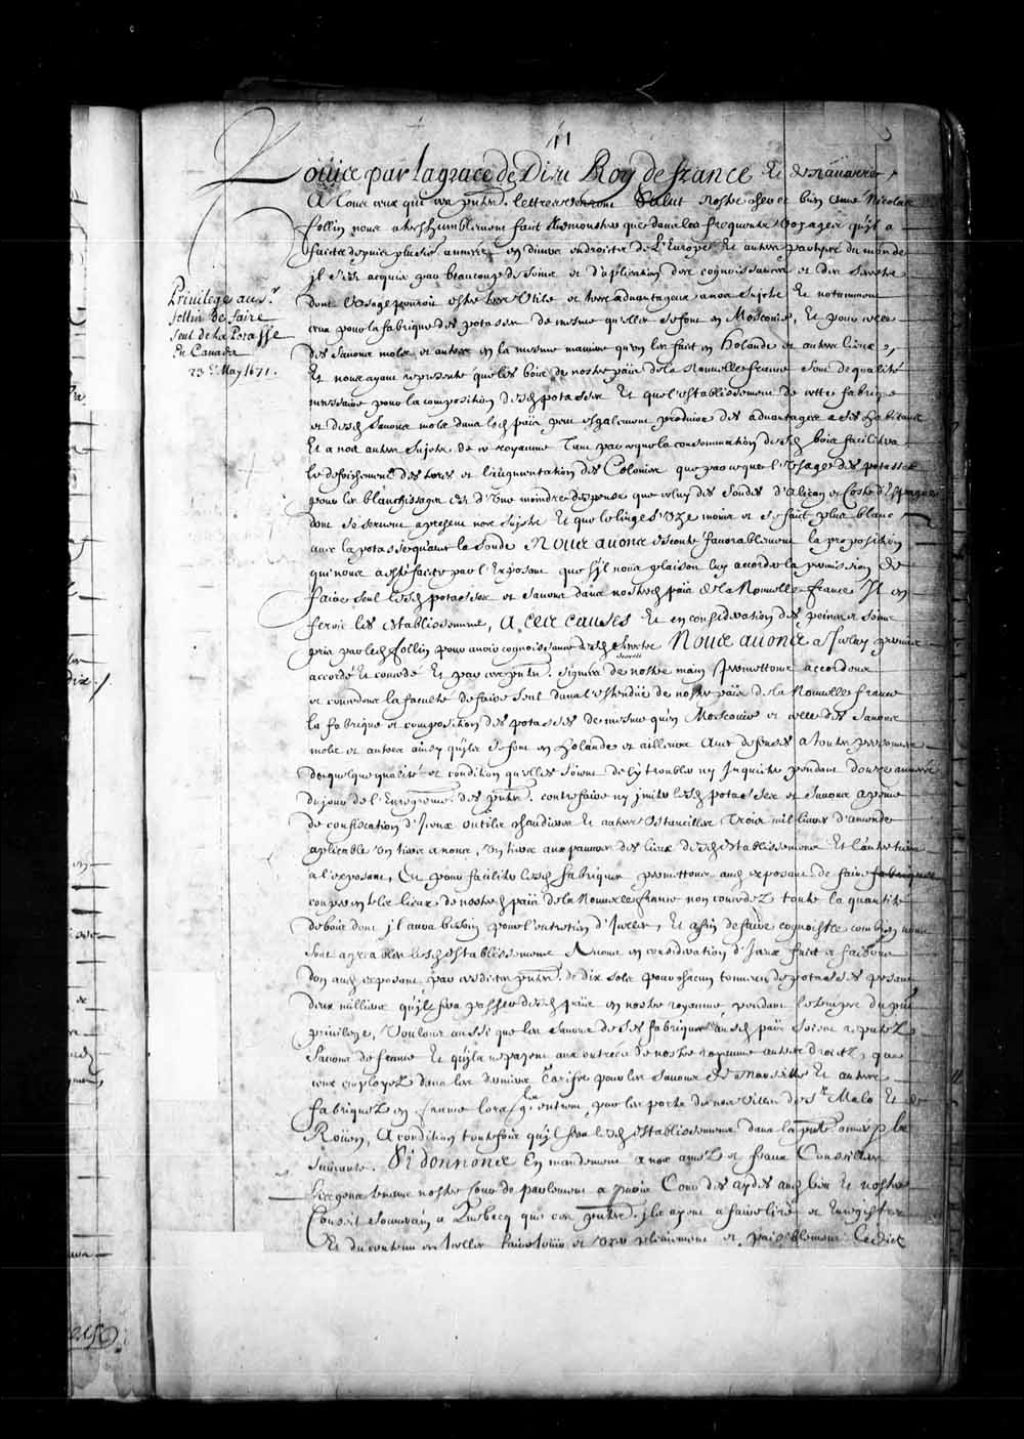 11
Louis par la grace de Dieu Roy de france Et de Nauarre
A tous ceux qui ces pntes. lettres verront Salut Nostre cher et bien amé Nicolas
follin nous a tres humblement fait Remonstrer que dans les frequents voyages qu'il a
faicts depuis plusieurs années en diuers endroits de L'Europe Et autres parties du monde
jl s'est acquis par beaucoup de soins et d'aplication des cognoissances et des secrets
dont L'vsage pouroit estre tres vtile et tres aduantageux a nos Sujets Et notamment
Priuilege au Sr.
follin de faire
seul de la Potasse
En Canada
23e. May 1671.
ceux pour la fabrique des potasses de mesme qu'elles se font en Moscouie, Et pour celle
des sauons mols et autres en la mesme maniere qu'on les fait en Holande et autres lieux,
Et nous ayant representé que les bois de nostre païs de la Nouuelle france sont de qualité
necessaire pour la composition desd potasses Et que l'establissement de cette fabrique
et desd sauons mols dans led païs peut esgalement produire des aduantages a ses habitans
Et a nos autres Sujets de ce royaume Tant parceque la consommation desd bois facilitera
le defrichement des terres et l'augmentation des Colonies que parceque l'vsage des potasses
pour les blanchissages est d'vne moindre despense que celuy des soudes d'Alican et Coste d'Espagne
dont se seruent a present nos Sujets Et que le linge s'vze moins et se fait plus blanc
auec la potasse qu'auec la soude Nous auons escouté fauorablement la proposition
qui nous a esté faicte par l'Exposant que s'il nous plaisoit luy accorder la permission de
faire seul lesd potasses et sauons dans nostred païs de la Nouuelle france Il en
feroit les establissemens, A ces causes Et en consideration des peines et soins
pris par led follin pour auoir cognoissance desd secrets Nous auons a Iceluy permis
accordé Et concedé Et par ces pntes. signées de nostre main permettons accordons
et concedons la faculté de faire seul dans l'estendue de nostre païs de la Nouuelle france
la fabrique et composition des potasses de mesme qu'en Moscouie et celle des sauons
mols et autres ainsy qu'ils se font en holande et ailleurs Auec defenses a toutes personnes
de quelque qualité et condition qu'elles soient de l'y troubler ny Inquieter pendant douze années
du jour de l'Enregistrement des pntes. contrefaire ny jmiter lesd potasses et sauons a peine
de confiscation d'Jceux outils chaudieres Et autres vstancilles Trois mil liures d'amende
aplicable vn tiers a nous, vn tiers aux pauures des lieux desd establissemens Et l'autre tiers
a l'exposant, Et pour faciliter lesd fabriques permettons aud exposant de faire
couper en tels lieux de nostred païs de la Nouuelle france non concedez toute la quantité
de bois dont jl aura besoin pour l'entretien d'Jcelles, Et afin de faire cognoistre combien nous
sont agreables lesd establissemens Auons en consideration d'Jceux fait et faisons
don aud exposant par cesdites pntes. de dix sols pour chacun tonneau de potasses pesant
deux milliers qu'il fera passer desd païs en nostre royaume pendant le temps du pnt
priuilege, Voulons aussi que les sauons de ses fabriques aud païs soient reputez
sauons de france Et qu'ils ne payent aux entrées de nostre royaume autres droits, que
ceux employez dans les derniers tarifs pour les sauons de Marseille Et autres
fabriquez en france lors qu'ils entrent par les ports de nos villes de St. Malo Et de
Roüen, A condition toutefois qu'il fera lesd establissemens dans la pnte année ou la
suiuante. Si donnons En mandement a nos amez et feaux Conseillers
les gens tenans nostre Cour de parlement a paris Cour des aydes aud lieu Et nostre
Conseil Souuerain a Quebecq que ces pntes. jls ayent a faire lire et Enregistrer
Et du contenu en Icelles faire joüir et vser plainement et paisiblement Ledict